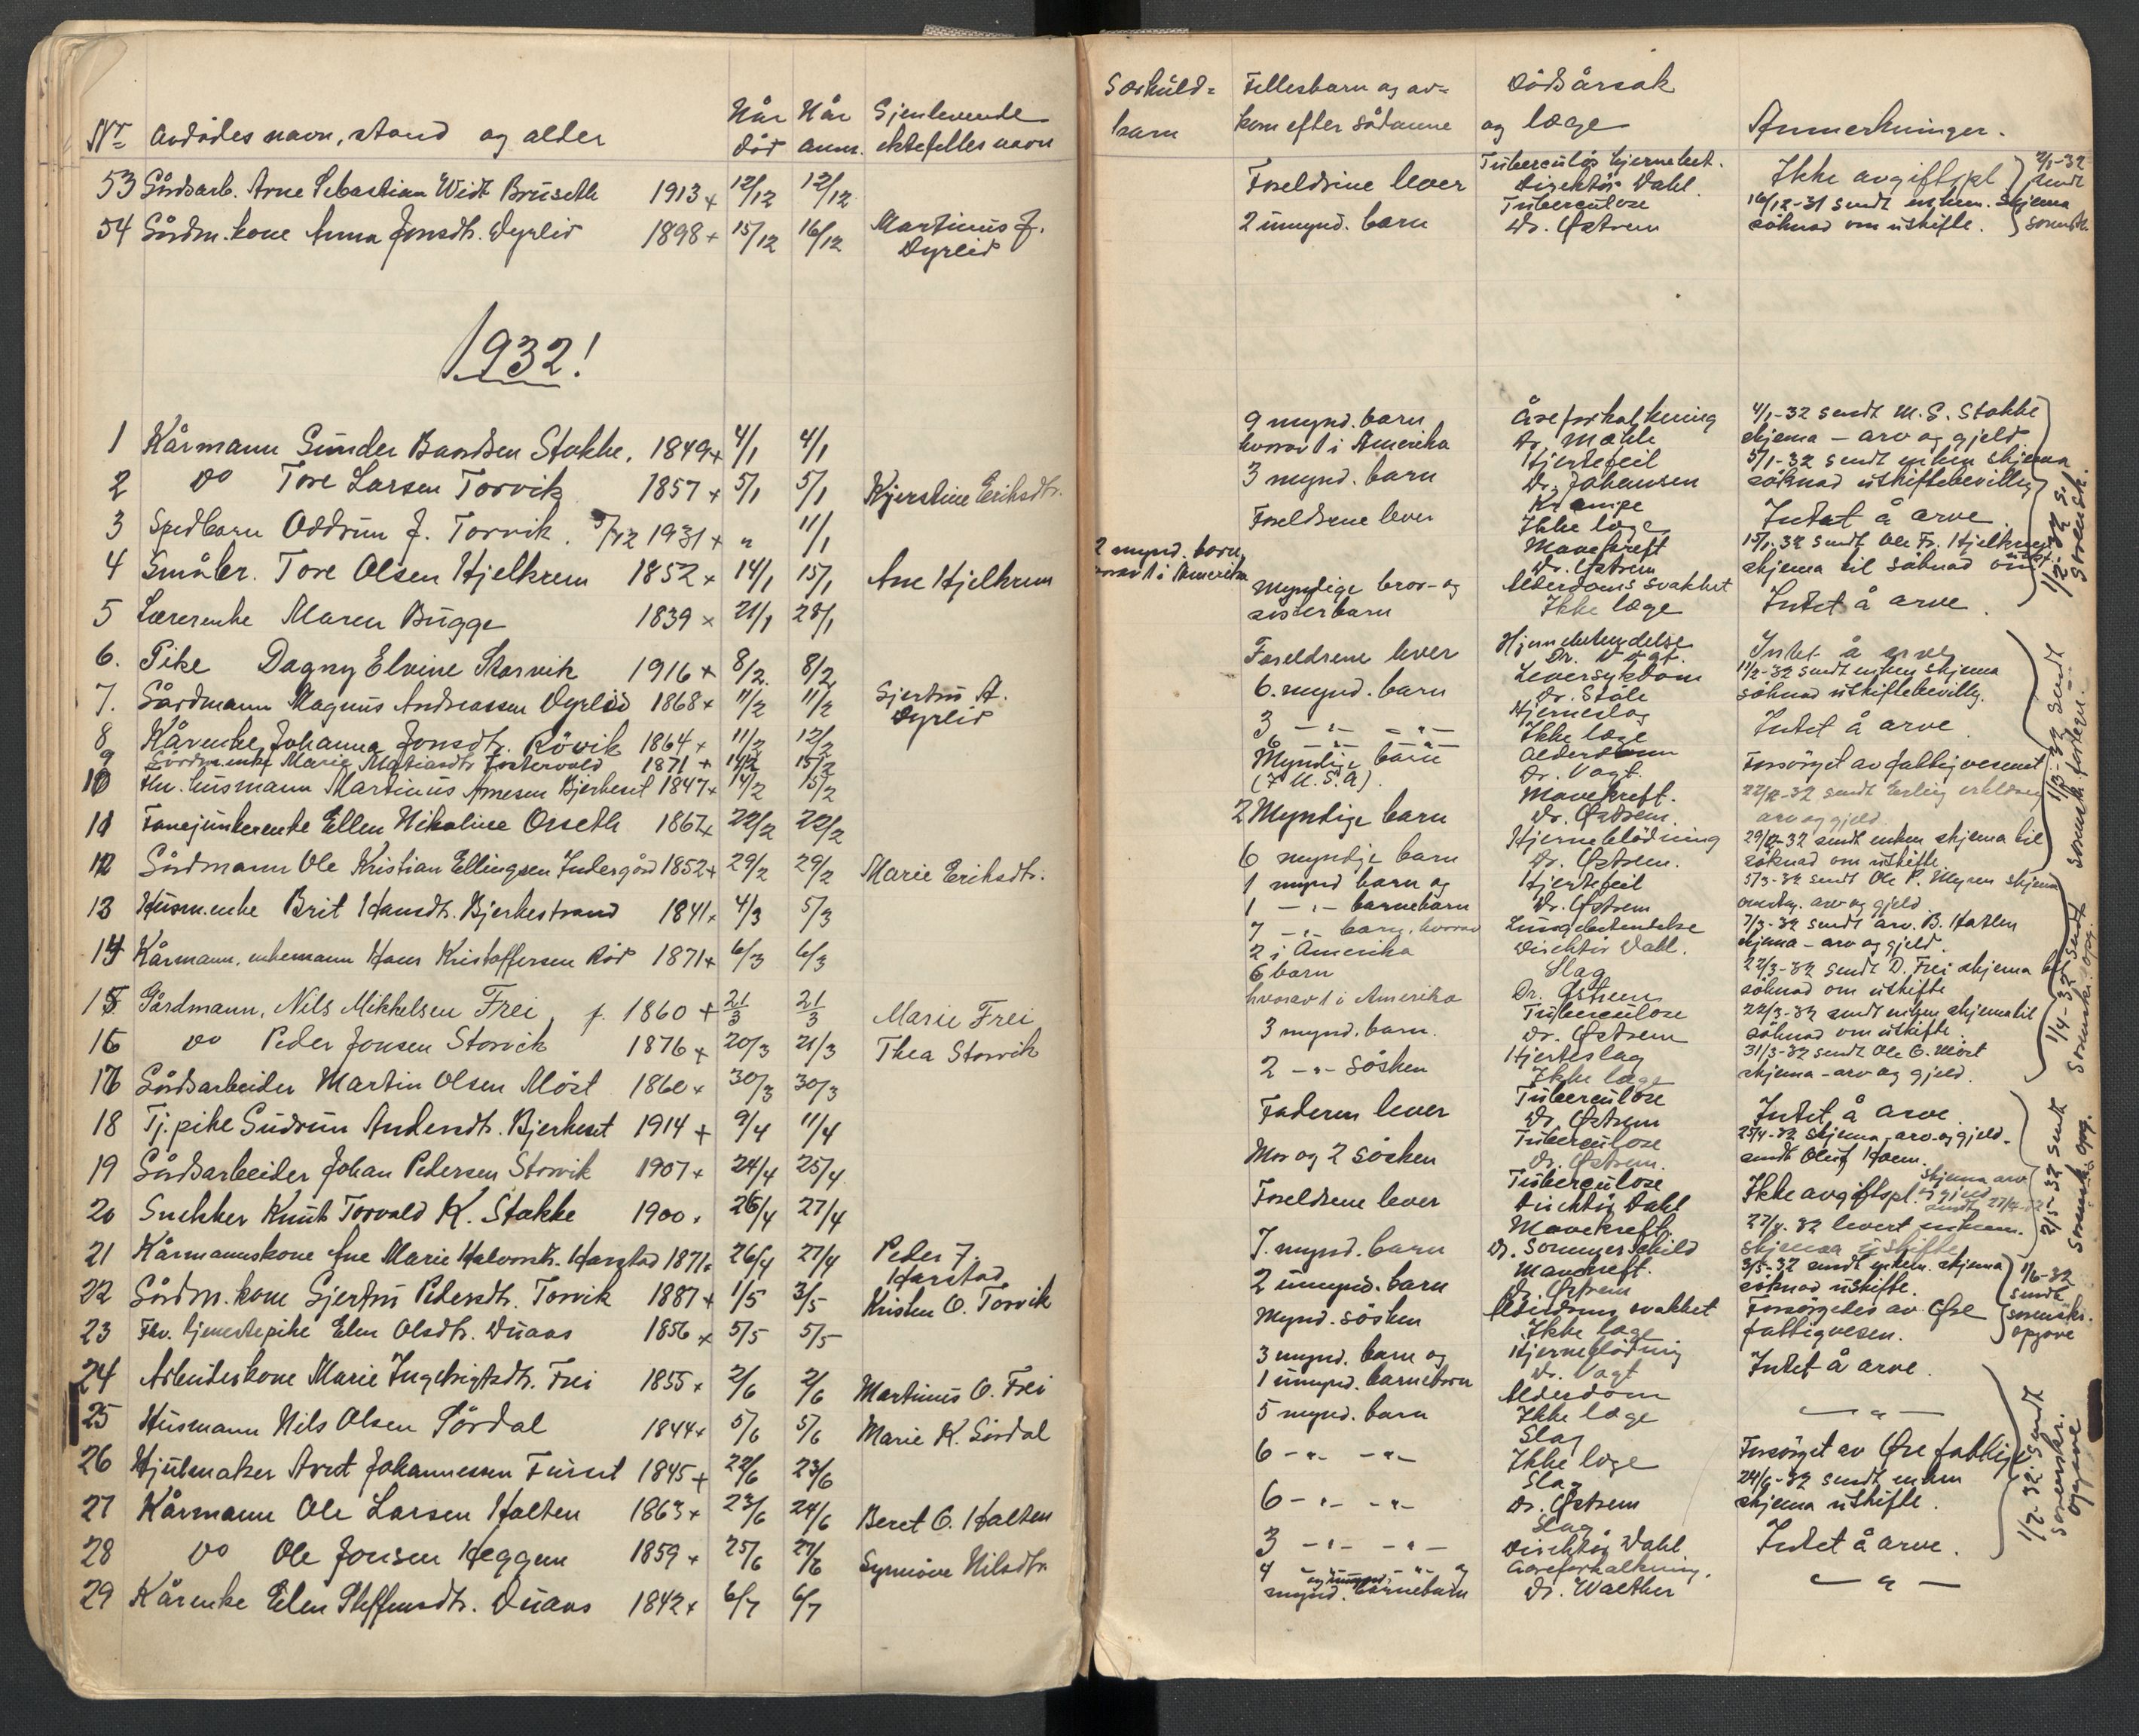 Nr Avdødes navn, stand og alder Når død Når anm. Gjenlevende ektefelles navn
53 Gårdsarb. Arne Sebastian Bruseth 1913 + 12/12 12/12
54 Gårdm. kone Anna Jonsdtr. Dyrlid 1898 + 15/12 16/12 Martinus J. Dyrlid
1932!
1 Kårmann Gunder Bardsen Stokke. 1849 + 4/1 4/1
2 Do Tore Larsen Torvik 1857 + 5/1 5/1 Kjerstine Eriksdtr.
3 Spedbarn Oddrun J. Torvik. 5/12 1931 + " 11/1
4 Småbr. Tore Olsen Hjelkrem 1852 + 14/1 15/1 Ane Hjelkrem
5 Lærerenke Maren Bugge 1839 × 21/1 28/1
6. Pike Dagny Elvine Storvik 1916 + 8/2. 8/2
7. Gårdmann Magnus Andreassen Dyrlid 1868 + 11/2 11/2 Gjertru A. Dyrlid
8 Kårenke Johanna Jonsdtr. Rövik 1864 + 11/2 12/2
9 Gårdm.enke Marie 1871 + 14/2 15/2
10 Fhv. husmann Martinus Arnesen Bjerkeset 1847 + 14/2 15/2
11 Fanejunkerenke Ellen Nikoline Orseth 1867 + 22/2 22/2
12 Gårdmann Ole Kristian Ellingsen Indergård 1852 + 29/2 29/2 Marie Eriksdtr.
13 Husm.enke Brit Hansdtr. Bjerkestrand 1841 + 4/3 5/3
14 Kårmann, enkemann Hans Kristoffersen Röd 1871 + 6/3 6/3
15 Gårdmann, Nils Mikkelsen Frei, f. 1860 + 21/3 21/3 Marie Frei
16 Do Peder Jonsen Storvik 1876 + 20/3 21/3 Thea Storvik
17 Gårdsarbeider Martin Olsen Möst 1860 + 30/3 30/3
18 Tj.pike Gudrun Andersdtr. Bjerkeset 1914 + 9/4 11/4
19 Gårdsarbeider Johan Pedersen Storvik 1907 + 24/4 25/4
20 Snekker Knut Torvald K. Stokke 1900 + 26/4 27/4
21 Kårmannskone Ane Marie Halvorsdtr. Harstad 1871 + 26/4 27/4 Peder J. Harstad
22 Gårdm. kone Gjertru Pedersdtr. Torvik 1887 + 1/5 3/5 Kristen O. Torvik
23 Fhv. tjenestepike Elen Olsdtr. Duaas 1856 + 5/5 5/5
24 Arbeiderkone Marie Ingebrigtsdtr. Frei 1855 + 2/6 2/6 Martinus O. Frei
25 Husmann Nils Olsen Sördal 1844 + 5/6 5/6 Marie K. Sördal
26 Hjulmaker Arnt Johannessen Furset 1845 + 22/6 23/6
27 Kårmann Ole Larsen Halten 1863 + 23/6 24/6 Beret O. Halten
28 Do Ole Jonsen Heggem 1859 + 25/6 27/6 Synnöve Nilsdtr.
29 Kårenke Elen Steffensdtr. Duaas 1842 + 6/7 6/7
Særkuld= barn Fellesbarn og av= kom efter sådanne Dödsårsak og læge Anmerkninger.
Foreldrene lever Tuberculös hjernebet. Direktör Dahl. Ikke avgiftspl.
2 umynd. barn Tuberculose Dr. Östrem 16/12-31 sendt enkem. skjema söknad om uskifte.
2/1-32 sendt sorenskr.
9 mynd. barn hvorav 1 i Amerika Åreforkalkning Dr. Mæhle 4/1-32 sendt M. G. Stokke skjema - arv og gjeld.
3 mynd. barn Hjertefeil Dr. Johansen 5/1-32 sendt enken skjema söknad uskiftebevillg.
Foreldrene lever Krampe Ikke læge Intet å arve.
2 mynd. barn, hvorav 1 i Amerika Mavekreft Dr. Östrem 15/1-32 sendt Ole Fr. Hjelkrem skjema til söknad om uskift.
Myndige bror- og sösterbarn Alderdoms svakhet Ikke læge Intet å arve.
1/2-32 s. sorensk.
Foreldrene lever Hjernebetendelse Dr. Vogt. Intet å arve
6. mynd. barn Leversykdom Dr. Ståle 11/2-32 sendt enken skjema söknad uskiftebevillg.
3 -"- -"- Hjerneslag Ikke læge Intet å arve
6 -"- -"- Alderdom
Myndige barn (7 U.S.A) Dr. Vogt. Forsörget av fattigvesenet
2 Myndige barn Mavekreft. Dr. Östrem. 22/2-32 sendt Erling arv og gjeld.
6 myndige barn Hjerneblödning Dr. Östrem. 29/2-32 sendt enken skjema til söknad om uskifte.
1/3-32 sendt
1 mynd barn og 1 -"- barnebarn Hjertefeil Dr. Östrem 5/3-32 sendt Ole P. Myren skjema arv og gjeld
7 -"- barn, hvorav 2 i Amerika Lungebetendelse Direktör Dahl. 7/3-32 sendt arv. B. Hatlen skjema - arv og gjeld.
6 barn hvorav 1 i Amerika Slag Dr. Östrem 22/3-32 sendt D. Frei skjema til söknad om uskifte
3 mynd. barn. Tuberculose Dr. Östrem 22/3-32 sendt enken skjema til söknad om uskifte.
2 -"- sösken Hjerteslag Ikke læge 31/3-32 sendt Ole O. Möst skjema - arv og gjeld.
1/4-32 sendt sorenskr. opg.
Faderen lever Tuberculose Dr. Östrem Intet å arve
Mor og 2 sösken Tuberculose Dr. Östrem. 25/4-32 skjema, arv og gjeld. sendt Oluf Hoem.
Foreldrene lever Tuberculose Direktör Dahl Ikke avgiftspl. skjema arv og gjeld sendt 27/4-32
7. mynd. barn Mavekreft. Dr. Sonnyer Schild 27/4. 32 levert enkem. skjema uskifte
2/5-32 sendt sorenskr. opg.
2 umynd. barn Mavekreft. Dr. Östrem 3/5-32 sendt enkem. skjema söknad uskifte.
Mynd. sösken Alderdoms svakhet Ikke læge Forsörgedes av Öre fattigvesen.
1/6-32 sendt sorenskr. opgave
3 mynd. barn og 1 umynd. barnebarn Hjerneblödning Dr. Vogt Intet å arve.
5 mynd. barn Alderdom Ikke læge -"-
6 -"- -"- Slag Ikke læge Forsörget av Öre fattigv.
6 -"- -"- Slag Dr. Östrem 24/6-32 sendt enken skjema uskifte.
3 -"- -"- Slag Direktör Dahl Intet å arve.
4 -"- -"- og mynd. og umynd. barnebarn Åreforkalkning. Dr. Walther -"-
1/7-32 sendt sorenskr. opgave